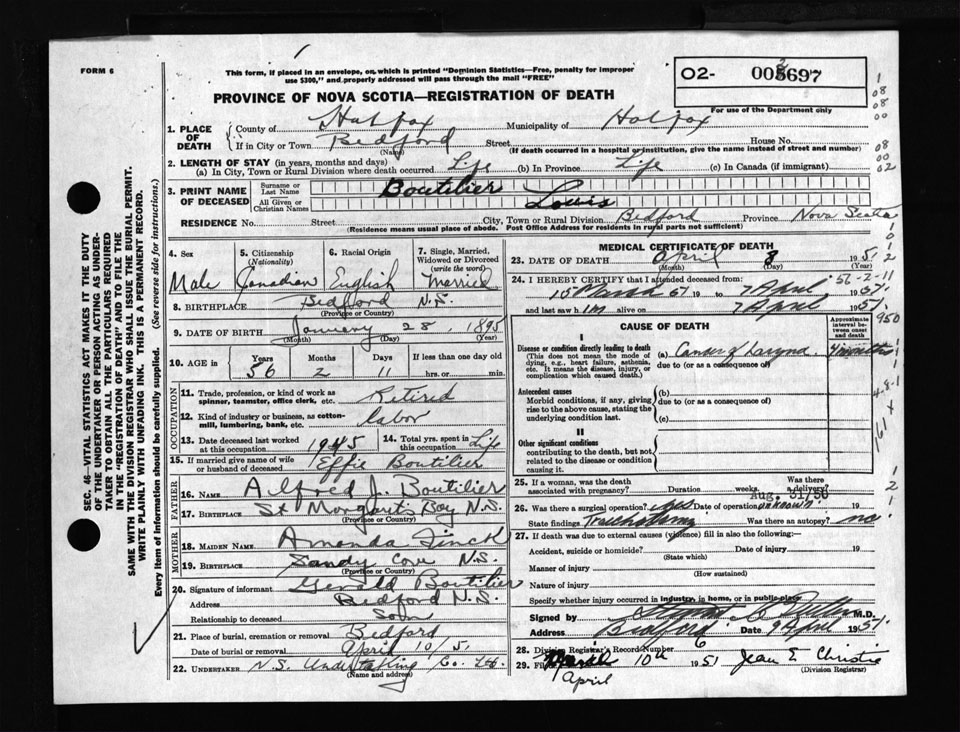 FORM 6
This form, if placed in an envelope, on which is printed "Dominion Statistics—Free, penalty for improper
use $300," and properly addressed will pass through the mail "FREE"
O2- 005697
For use of the Department only
PROVINCE OF NOVA SCOTIA—REGISTRATION OF DEATH
1. PLACE OF DEATH
County of Halifax Municipality of Halifax
If in City or Town Bedford Street House No.
(Name) (If death occurred in a hospital or institution, give the name instead of street and number)
2. LENGTH OF STAY (in years, months and days)
(a) In City, Town or Rural Division where death occurred Life (b) In Province Life (c) In Canada (if immigrant)
3. PRINT NAME OF DECEASED
Surname or Last Name Boutilier
All Given or Christian Names Louis
RESIDENCE No. Street City, Town or Rural Division Bedford Province Nova Scotia
(Residence means usual place of abode. Post Office Address for residents in rural parts not sufficient)
4. Sex Male
5. Citizenship (Nationality) Canadian
6. Racial Origin English
7. Single, Married, Widowed or Divorced (write the word) Married
8. BIRTHPLACE Bedford N.S.
(Province or Country)
9. DATE OF BIRTH January 28, 1895
(Month) (Day) (Year)
10. AGE in Years 56 Months 2 Days 11 If less than one day old
hrs. or min.
OCCUPATION
11. Trade, profession, or kind of work as spinner, teamster, office clerk, etc. Retired
12. Kind of industry or business, as cotton-mill, lumbering, bank, etc. labor
13. Date deceased last worked at this occupation 1945
14. Total yrs. spent in this occupation Life
15. If married give name of wife or husband of deceased Effie Boutilier
FATHER
16. NAME Alfred J. Boutilier
17. BIRTHPLACE St Margarets Bay N.S.
(Province or Country)
MOTHER
18. MAIDEN NAME Amanda Finck
19. BIRTHPLACE Sandy Cove N.S.
(Province or Country)
20. Signature of informant Gerald Boutilier
Address Bedford N.S.
Relationship to deceased Son
21. Place of burial, cremation or removal Bedford
Date of burial or removal April 10/51
22. UNDERTAKER N.S. Undertaking Co. Ltd.
MEDICAL CERTIFICATE OF DEATH
23. DATE OF DEATH April 8 1951
(Month) (Day) (Year)
24. I HEREBY CERTIFY that I attended deceased from:
15 March 51 19 to 7 April 1951
and last saw him alive on 7 April 1951
CAUSE OF DEATH
Approximate interval between onset and death
I
Disease or condition directly leading to death
(This does not mean the mode of dying, e.g., heart failure, asthenia, etc. It means the disease, injury, or complication which caused death.)
(a) Cancer of Larynx 4 months
due to (or as a consequence of)
Antecedent causes
Morbid conditions, if any, giving rise to the above cause, stating the underlying condition last.
(b)
due to (or as a consequence of)
(c)
II
Other significant conditions
contributing to the death, but not related to the disease or condition causing it.
25. If a woman, was the death associated with pregnancy? Duration weeks. Was there a delivery?
Aug. 31/50
26. Was there a surgical operation? yes Date of operation unknown 19
State finding Tracheotomy Was there an autopsy? no
27. If death was due to external causes (violence) fill in also the following:
Accident, suicide or homicide? Date of injury 19
(State which)
Manner of injury
(How sustained)
Nature of injury
Specify whether injury occurred in industry, in home, or in public place
Signed by M.D.
Address Bedford Date 9 April 1951
28. Division Registrar's Record Number 6
29. Filed March 10th 1951 Jean E. Christie
April (Division Registrar)
SEC. 46—VITAL STATISTICS ACT MAKES IT THE DUTY
OF THE UNDERTAKER OR PERSON ACTING AS UNDER-
TAKER TO OBTAIN ALL THE PARTICULARS REQUIRED
IN THE "REGISTRATION OF DEATH" AND TO FILE THE
SAME WITH THE DIVISION REGISTRAR WHO SHALL ISSUE THE BURIAL PERMIT.
WRITE PLAINLY WITH UNFADING INK. THIS IS A PERMANENT RECORD.
Every item of information should be carefully supplied. (See reverse side for instructions.)